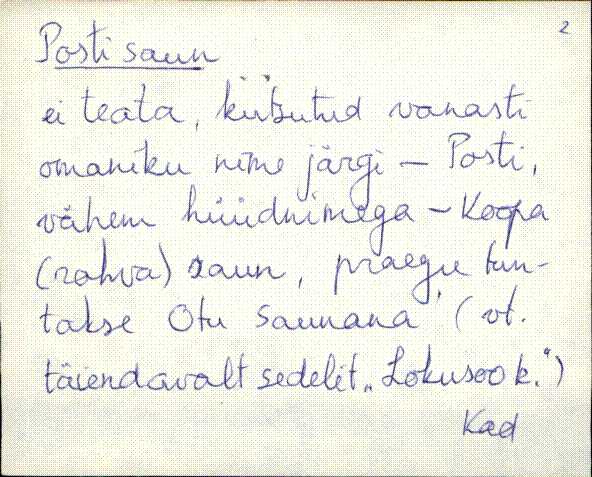 2
Posti saun
ei teata, kutsutud vanasti
omaniku nime järgi – Posti,
vähem hüüdnimega – Koopa
(rahva) saun, praegu tun-
takse Otu saunana (vt.
täiendavalt sedelit „Lokusoo k.")
Kad